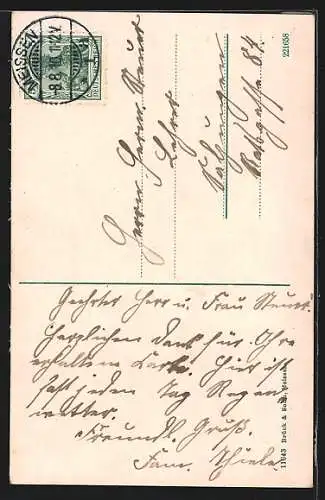 MEISSEN
-9.8.10.11-12V.
Herrn Herm. Steuer
Lehrer
Salzungen
Ratsgasse 84.
221658
Geehrter Herr u. Frau Steuer.
Herzlichen Dank für Ihre
erhaltene Karte. Hier ist
fast jeden Tag Regen
wetter.
Freundl. Gruß.
Fam. Thiele
11943 Brück & Sohn, Meissen